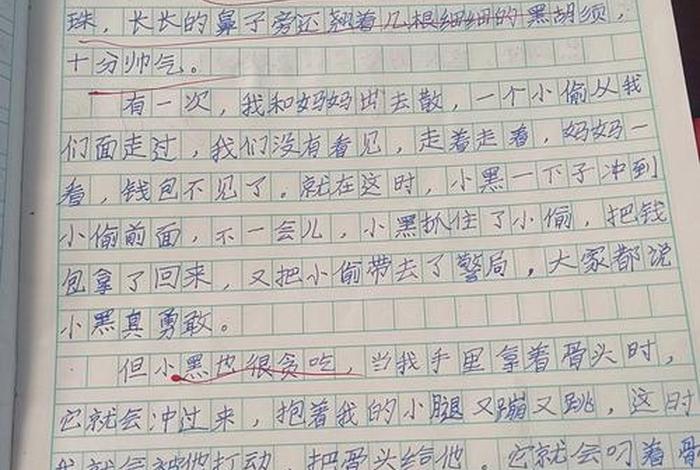 珠，长长的鼻子旁还翘着几根细细的黑胡须，
十分帅气。
有一次，我和妈妈出去散，一个小偷从我
们面走过，我们没有看见，走着走着，妈妈一
看，钱包不见了。就在这时，小黑一下子冲到
小偷前面，不一会儿，小黑抓住了小偷，把钱
包拿了回来，又把小偷带去了警局，大家都说
小黑真勇敢。
但小黑也很贪吃，当我手里拿着骨头时，
它就会冲过来，抱着我的小腿又蹦又跳，这时
我就会被他打动，把骨头给他，它就会叼着骨